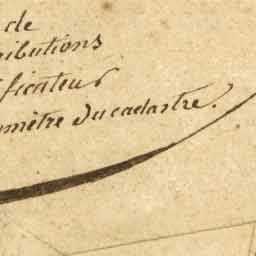 de
ributions
ificateur
omètre du cadastre.